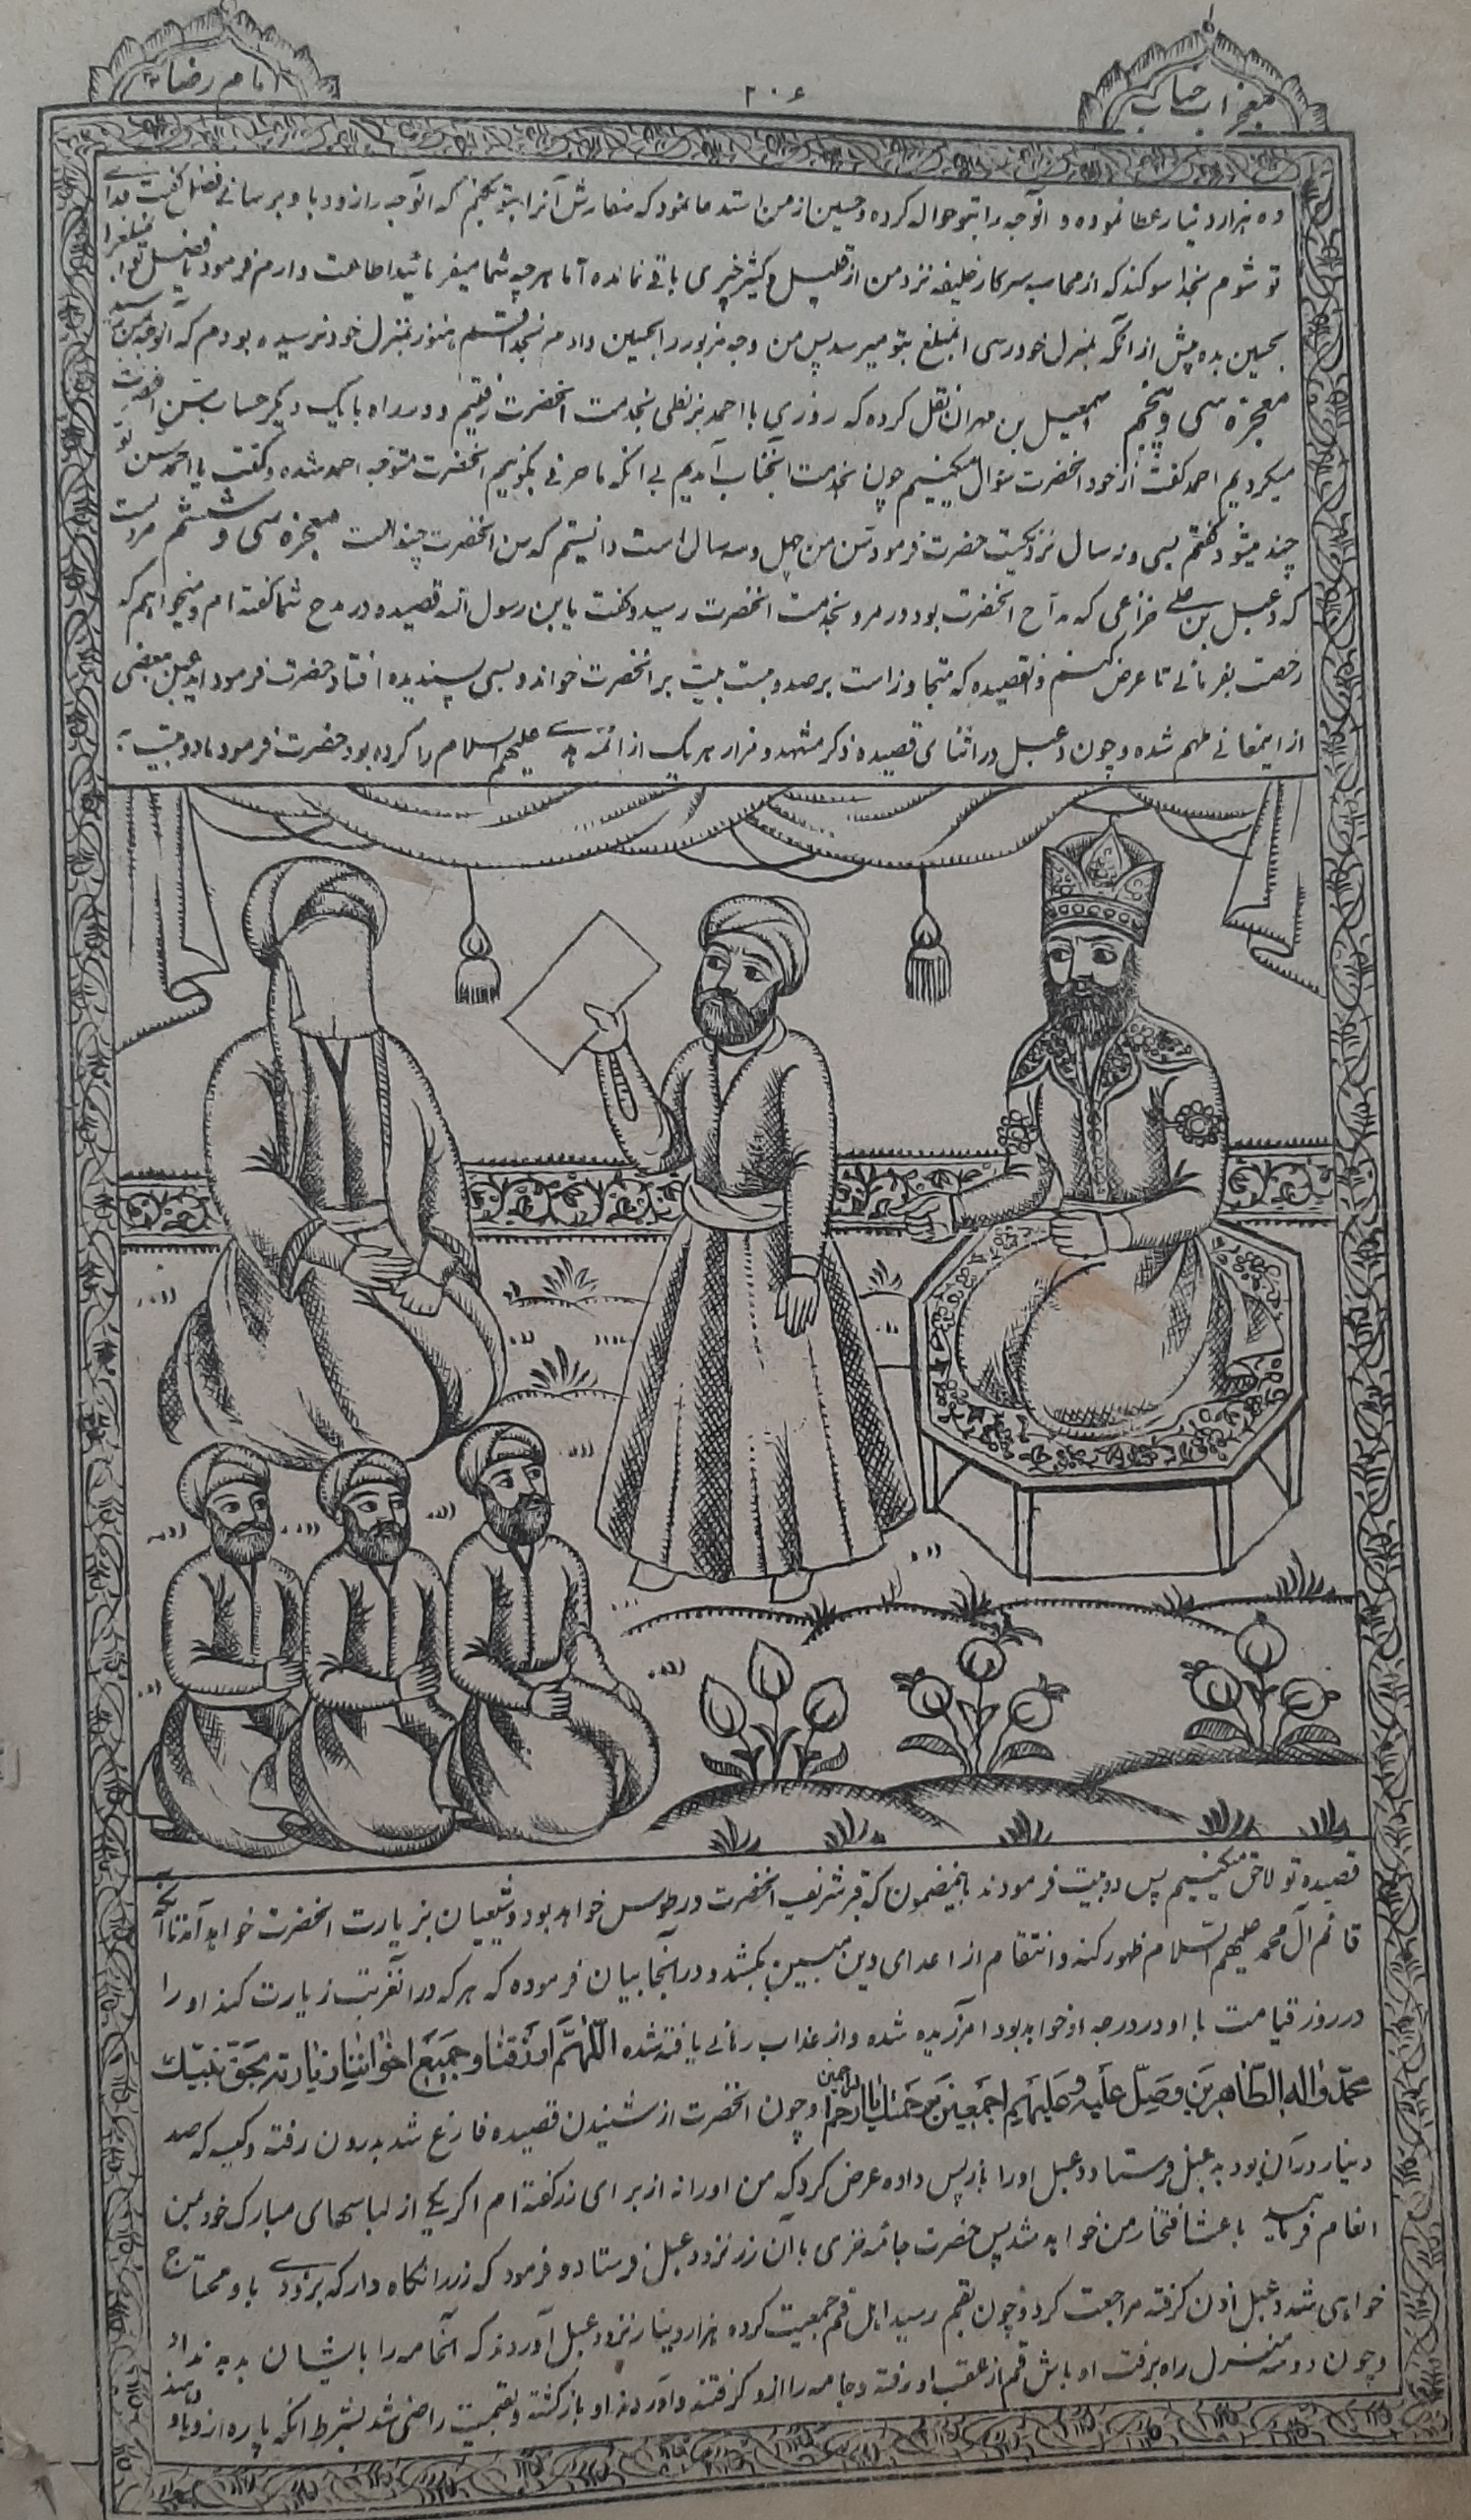 معجزات جناب
۲۰۶
امام رضا ع
ده هزار دینار عطا نموده و آنوجه را بتو حواله کرده و حسین از من استدعا نمود که سفارش آنرا بتو بکنم که آنوجه را زود باو برسانی فضل گفت فدای
تو شوم بخدا سوکند که از محاسبه سرکار خلیفه نزد من از قلیل و کثیر چیزی باقی نمانده اما هر چه شما میفرمائید اطاعت دارم فرمود یا فضل تو این مبلغ را
بحسین بده پیش از آنکه بمنزل خود رسی این مبلغ بتو میرسد پس من وجه مزبور را بحسین دادم بخدا قسم هنوز بمنزل خود نرسیده بودم که آنوجه بمن رسید
معجزه سی و پنجم اسمعیل بن مهران نقل کرده که روزی با احمد بزنطی بخدمت آنحضرت رفتیم و در راه با یک دیکر حساب سن آنحضرت
میکردیم احمد گفت از خود آنحضرت سؤال میکنیم چون بخدمت آنجناب آمدیم بی آنکه ما حرفی بگوئیم آنحضرت متوجه احمد شده و گفت یا احمد سن تو
چند میشود گفتم بسی و نه سال نزدیکست حضرت فرمود سن من چهل و سه سال است دانستیم که سن آنحضرت چند است معجزه سی و ششم مرویست
که دعبل بن علی خزاعی که مداح آنحضرت بود در مرو بخدمت آنحضرت رسید و گفت یابن رسول الله قصیده در مدح شما گفته ام و میخواهم که
رخصت بفرمائی تا عرض کنم و آنقصیده که متجاوز است بر صد و بیست بیت بر آنحضرت خواند و بسی پسندیده افتاد حضرت فرمود ایدعبل بعضی
از اینمعانی ملهم شده و چون دعبل در اثنای قصیده ذکر مشهد و مزار هر یک از ائمه هدی علیهم السلام را کرده بود حضرت فرمود ما دو بیت به
قصیده تو لاحق میکنیم پس دو بیت فرمودند باینمضمون که قبر شریف آنحضرت در طوس خواهد بود و شیعیان بزیارت آنحضرت خواهد آمد تا آنکه
قائم آل محمد علیهم السلام ظهور کند و انتقام از اعدای دین مبین بکشد و در آنجا بیان فرموده که هر که در آنغربت زیارت کند او را
در روز قیامت با او در درجه او خواهد بود آمرزیده شده و از عذاب رهائی یافته شده اللهم ارزقنا و جمیع اخواننا زیارته بحق نبیک
محمد و اله الطاهرین و صل علیه و علیهم اجمعین برحمتک یا ارحم الراحمین و چون آنحضرت از شنیدن قصیده فارغ شد بدرون رفته و کیسه که صد
دینار در آن بود بدعبل فرستاد دعبل او را بازپس داده عرض کرد که من او را نه از برای زر گفته ام اکر یکی از لباسهای مبارک خود بمن
انعام فرمایید باعث افتخار من خواهد شد پس حضرت جامه خزی با آن زر نزد دعبل فرستاد و فرمود که زر را نکاه دار که بزودی باو محتاج
خواهی شد دعبل اذن کرفته مراجعت کرد و چون بقم رسید اهل قم جمعیت کرده هزار دینار نزد دعبل آوردند که آنجامه را بایشان بدهد نداد
و چون دو سه منزل راه برفت اوباش قم از عقب او رفته و جامه را از او کرفتند و آوردند او بازکشته و بقیمت راضی شد بشرط آنکه پاره از او باو دهند